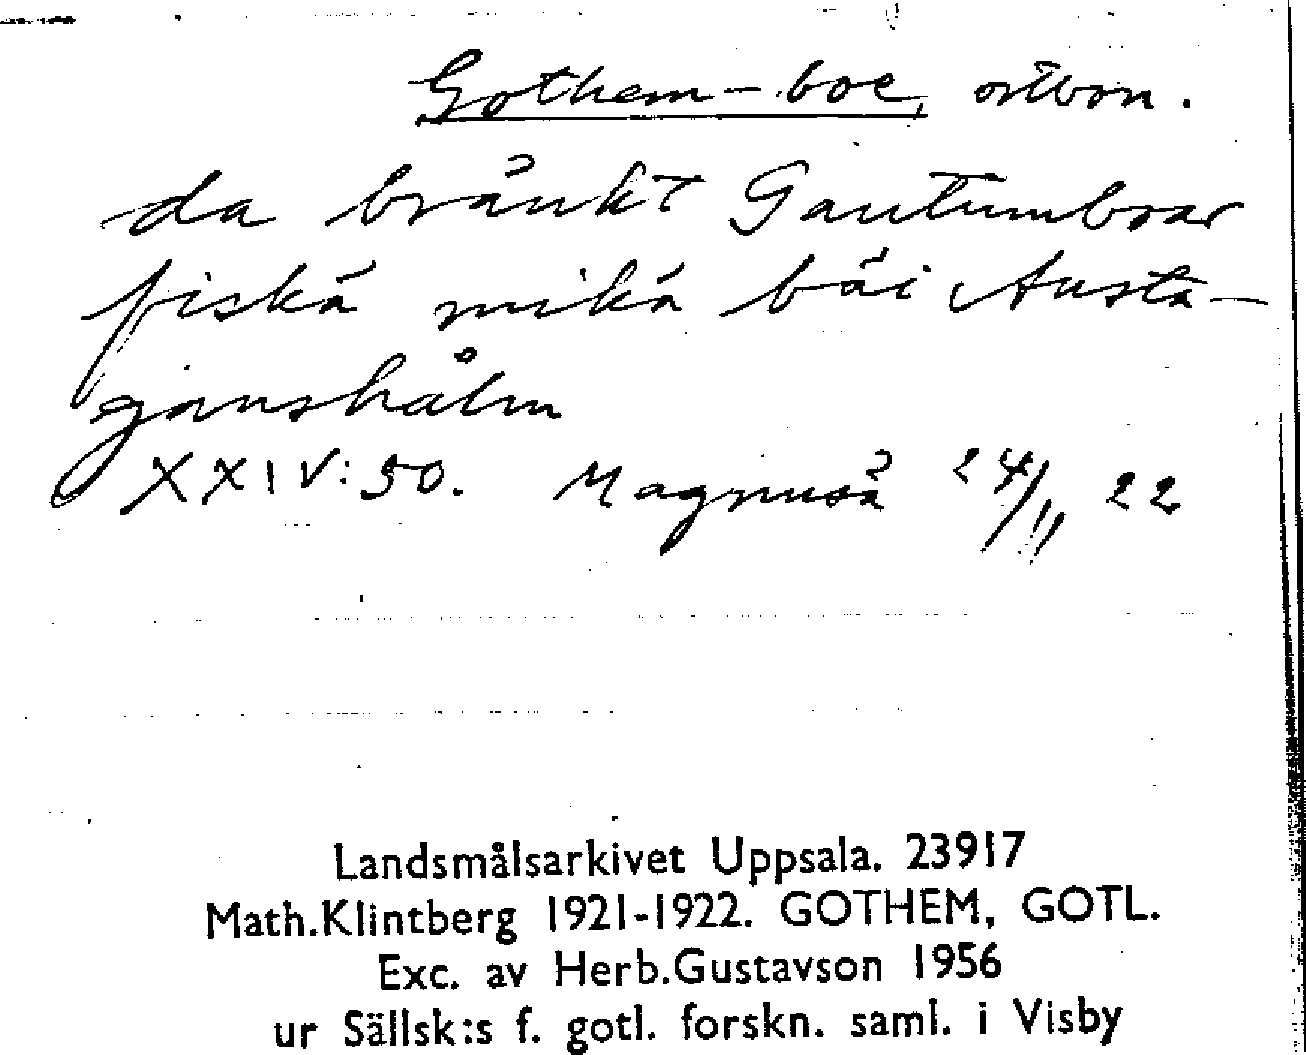 Gothem-boe, ortbon.
da bränkt Gautumboar
fiskä mikä bäi Austä-
ganshålm
XXIV:50. Magnusä 24/11 22
Landsmålsarkivet Uppsala. 23917
Math.Klintberg 1921-1922. GOTHEM, GOTL.
Exc. av Herb.Gustavson 1956
ur Sällsk:s f. gotl. forskn. saml. i Visby